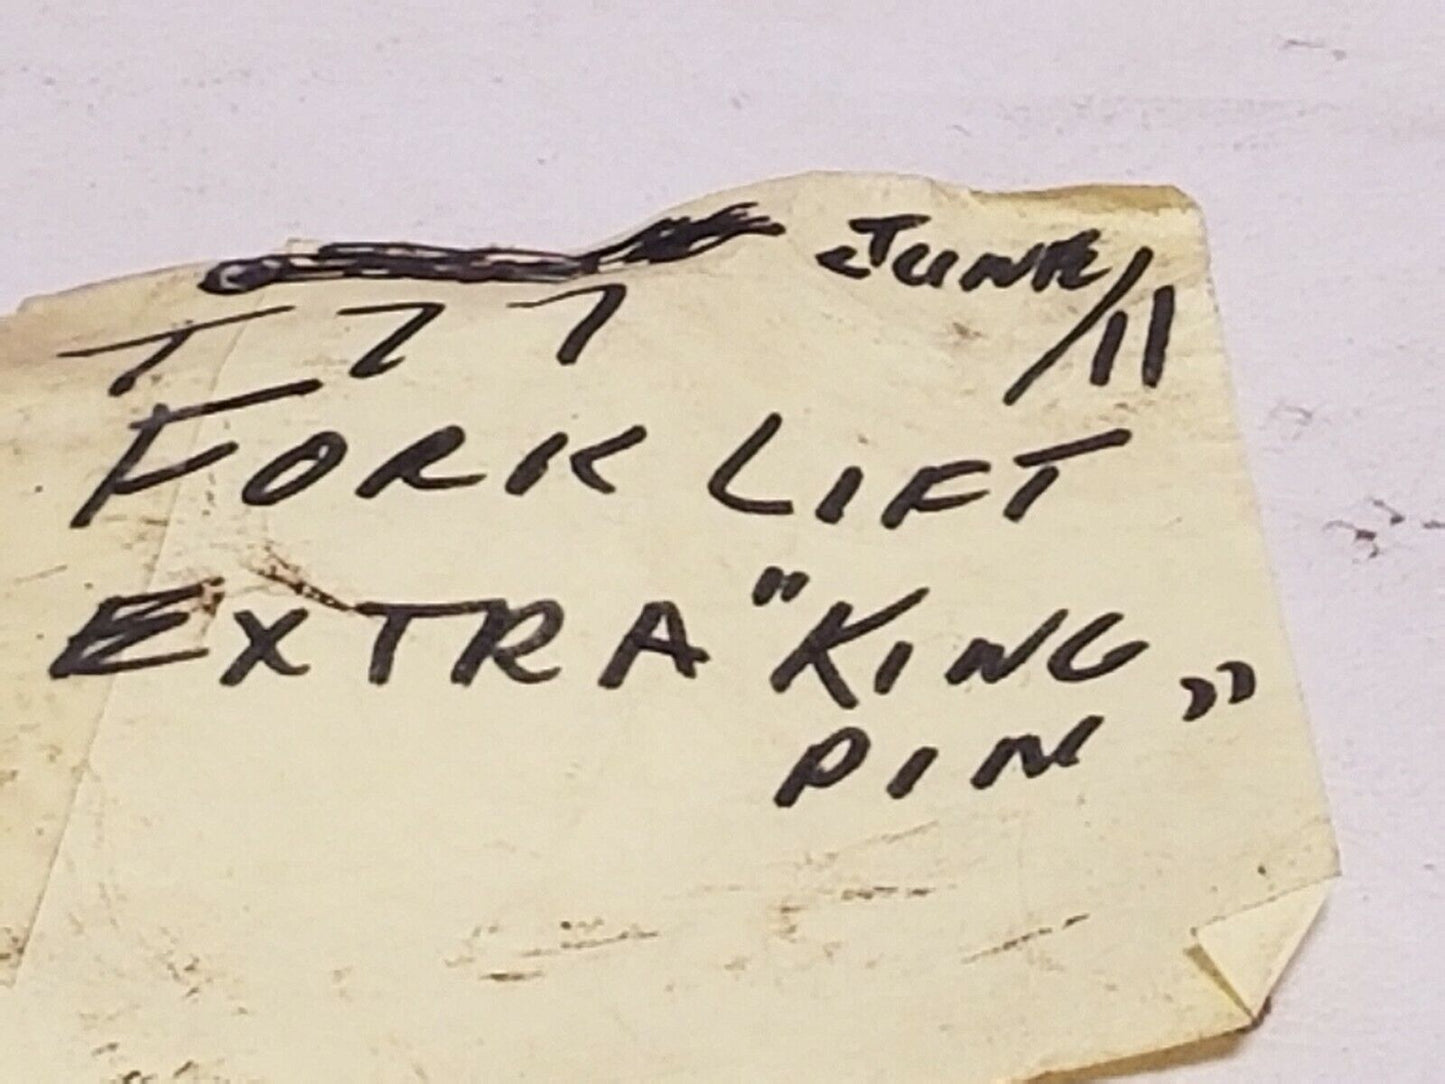 JUNE/11
T77
FORK LIFT
EXTRA "KING
PIN"